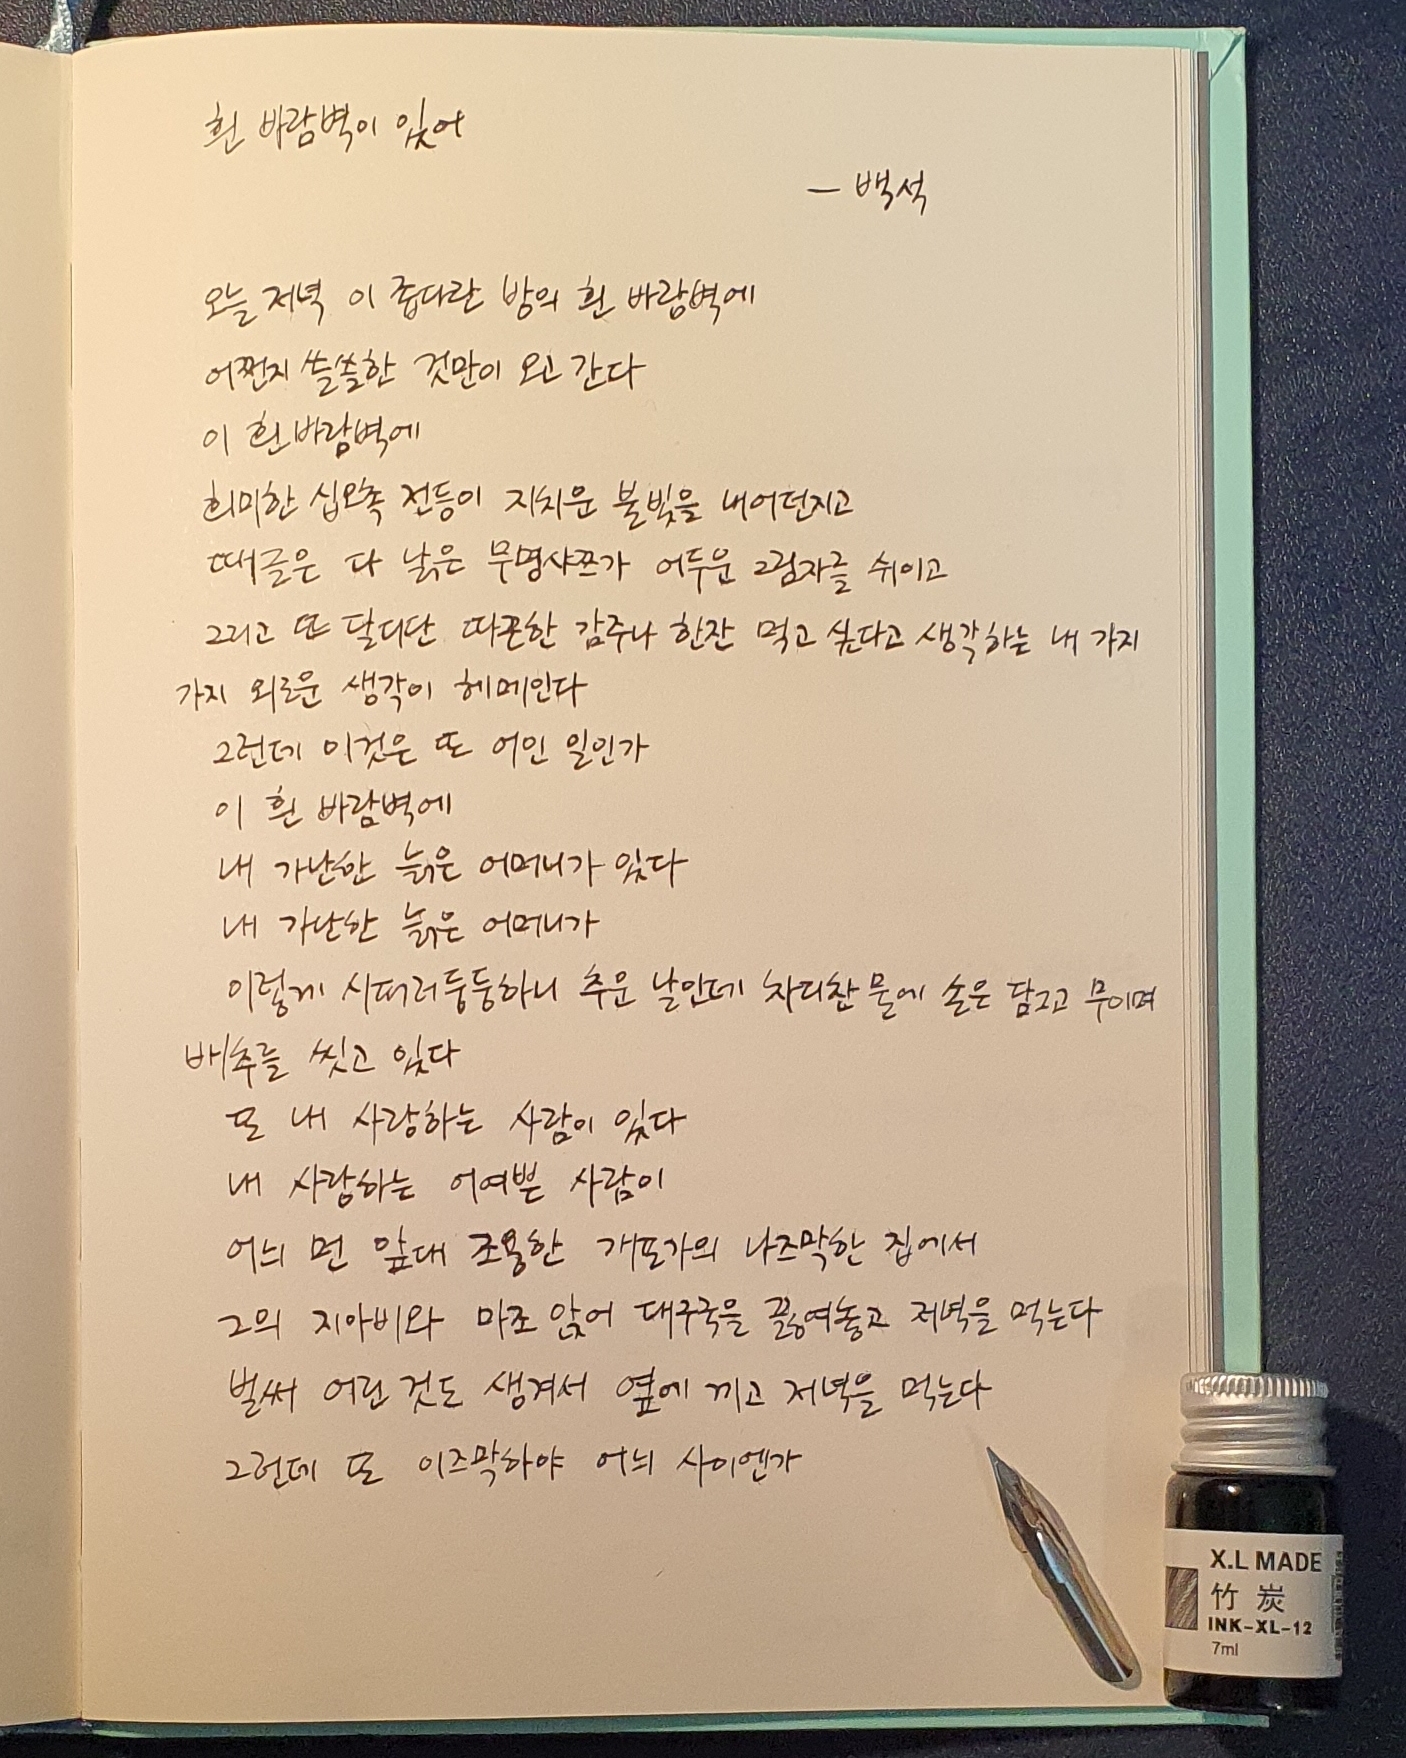 흰 바람벽이 있어
- 백석
오늘 저녁 이 좁다란 방의 흰 바람벽에
어쩐지 쓸쓸한 것만이 오고 간다
이 흰 바람벽에
희미한 십오촉 전등이 지치운 불빛을 내어던지고
때글은 다 낡은 무명샤쯔가 어두운 그림자를 쉬이고
그리고 또 달디단 따끈한 감주나 한잔 먹고 싶다고 생각하는 내 가지
가지 외로운 생각이 헤메인다
그런데 이것은 또 어인 일인가
이 흰 바람벽에
내 가난한 늙은 어머니가 있다
내 가난한 늙은 어머니가
이렇게 시퍼러둥둥하니 추운 날인데 차디찬 물에 손은 담그고 무이며
배추를 씻고 있다
또 내 사랑하는 사람이 있다
내 사랑하는 어여쁜 사람이
어늬 먼 앞대 조용한 개포가의 나즈막한 집에서
그의 지아비와 마조 앉어 대구국을 끓여놓고 저녁을 먹는다
벌써 어린 것도 생겨서 옆에 끼고 저녁을 먹는다
그런데 또 이즈막하야 어늬 사이엔가
X.L MADE
竹 炭
INK-XL-12
7ml